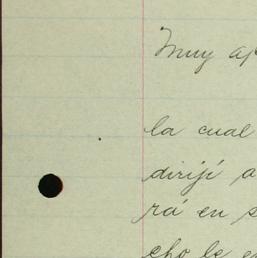 Muy ap
la cual
dirijí a
rá en s
cho le e